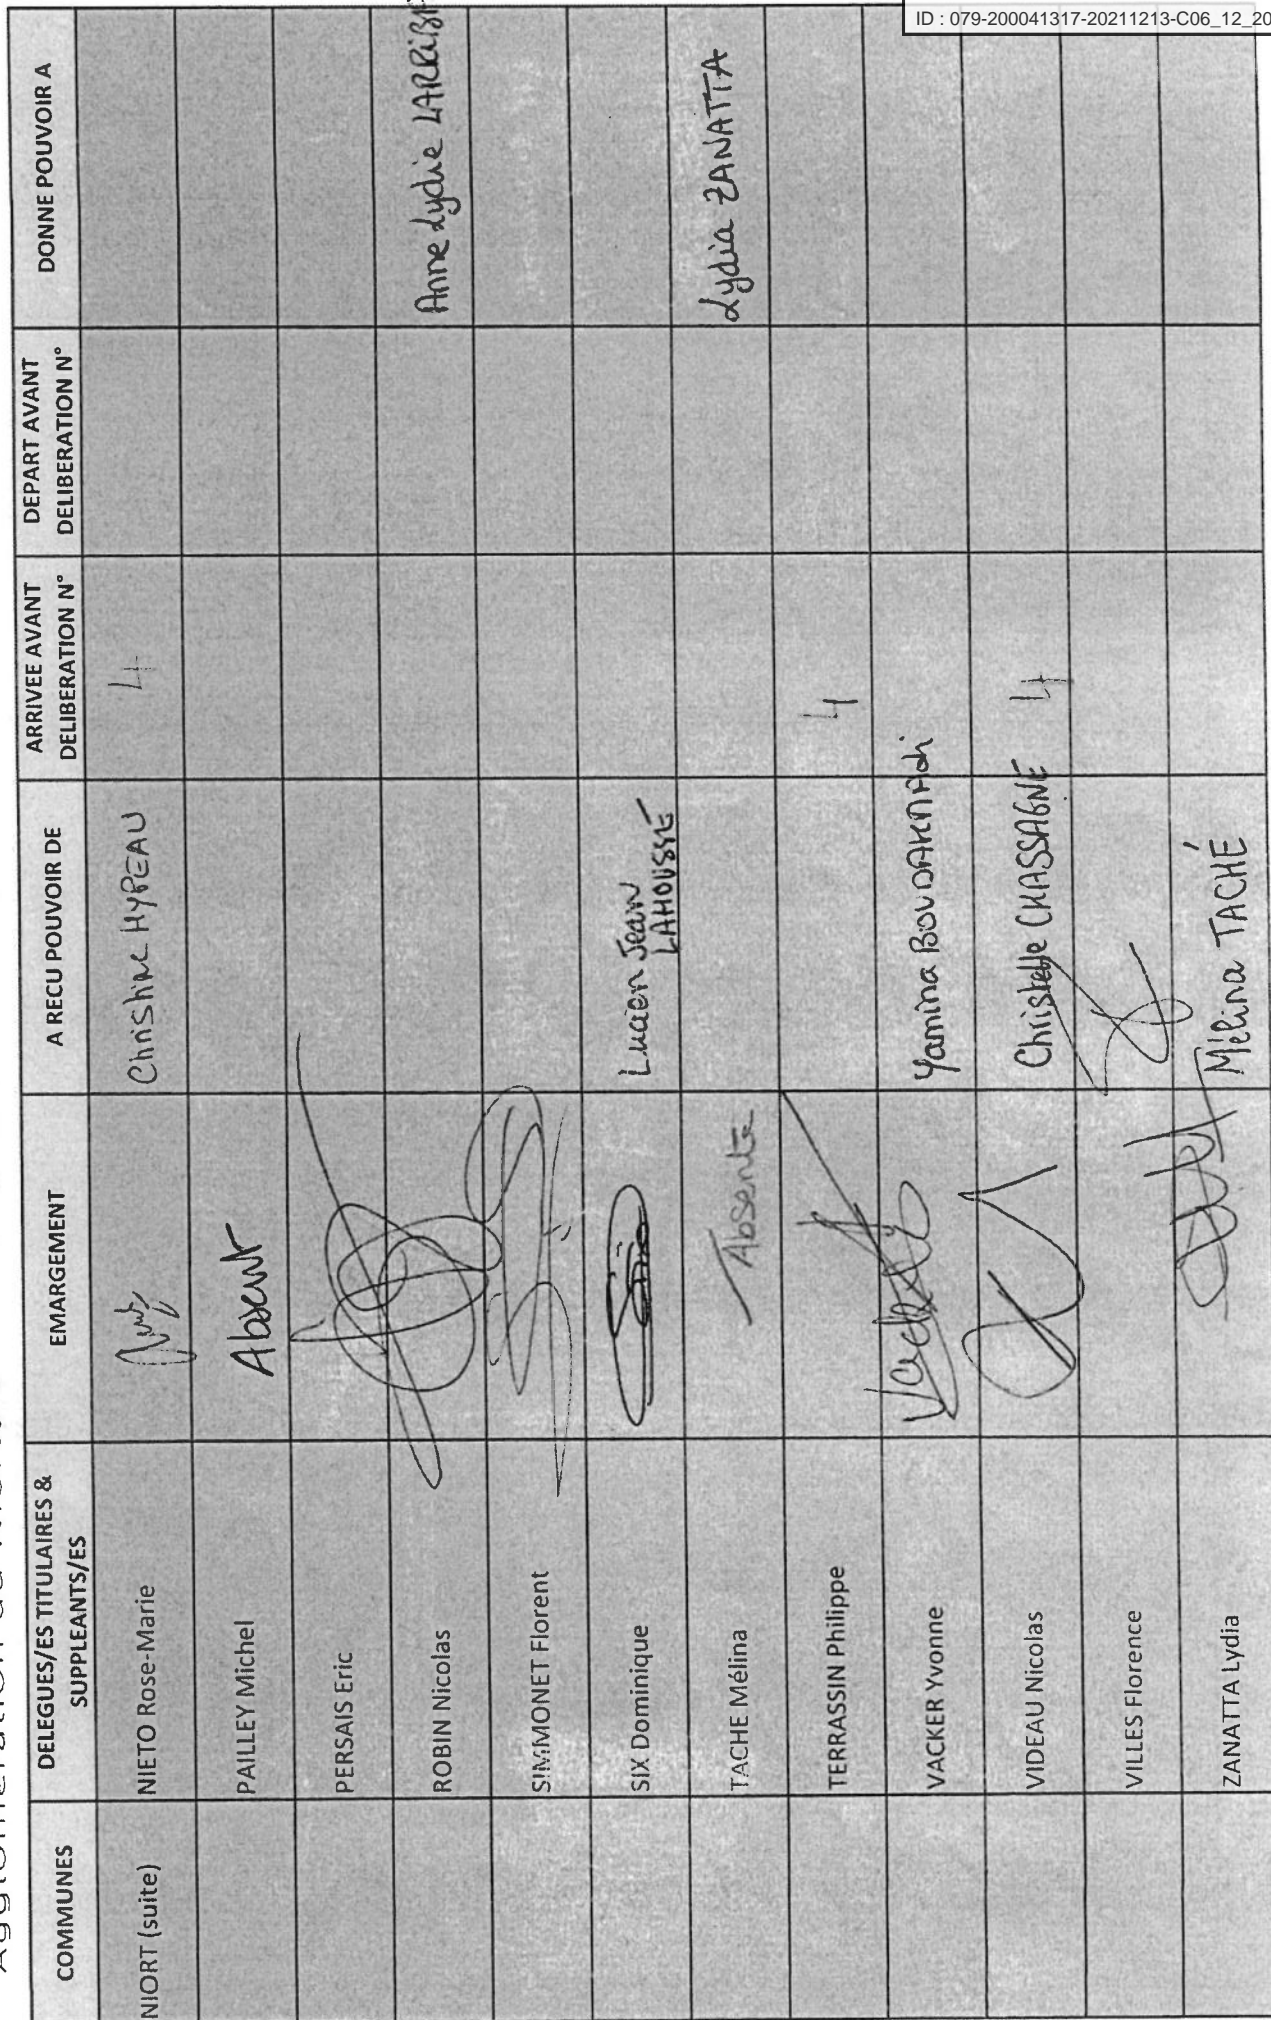 ID : 079-200041317-20211213-C06_12_20
COMMUNES
DELEGUES/ES TITULAIRES &
SUPPLEANTS/ES
EMARGEMENT
A RECU POUVOIR DE
ARRIVEE AVANT
DELIBERATION N°
DEPART AVANT
DELIBERATION N°
DONNE POUVOIR A
NIORT (suite)
NIETO Rose-Marie
Christine HYPEAU
4
PAILLEY Michel
Absent
PERSAIS Eric
ROBIN Nicolas
Anne Lydie LARRIBA
SIMMONET Florent
SIX Dominique
Lucien Jean
LAHOUSSE
TACHE Mélina
Absente
Lydia ZANATTA
TERRASSIN Philippe
4
VACKER Yvonne
Yamina BOUDAHMANI
VIDEAU Nicolas
Christelle CHASSAGNE
4
VILLES Florence
ZANATTA Lydia
Mélina TACHÉ